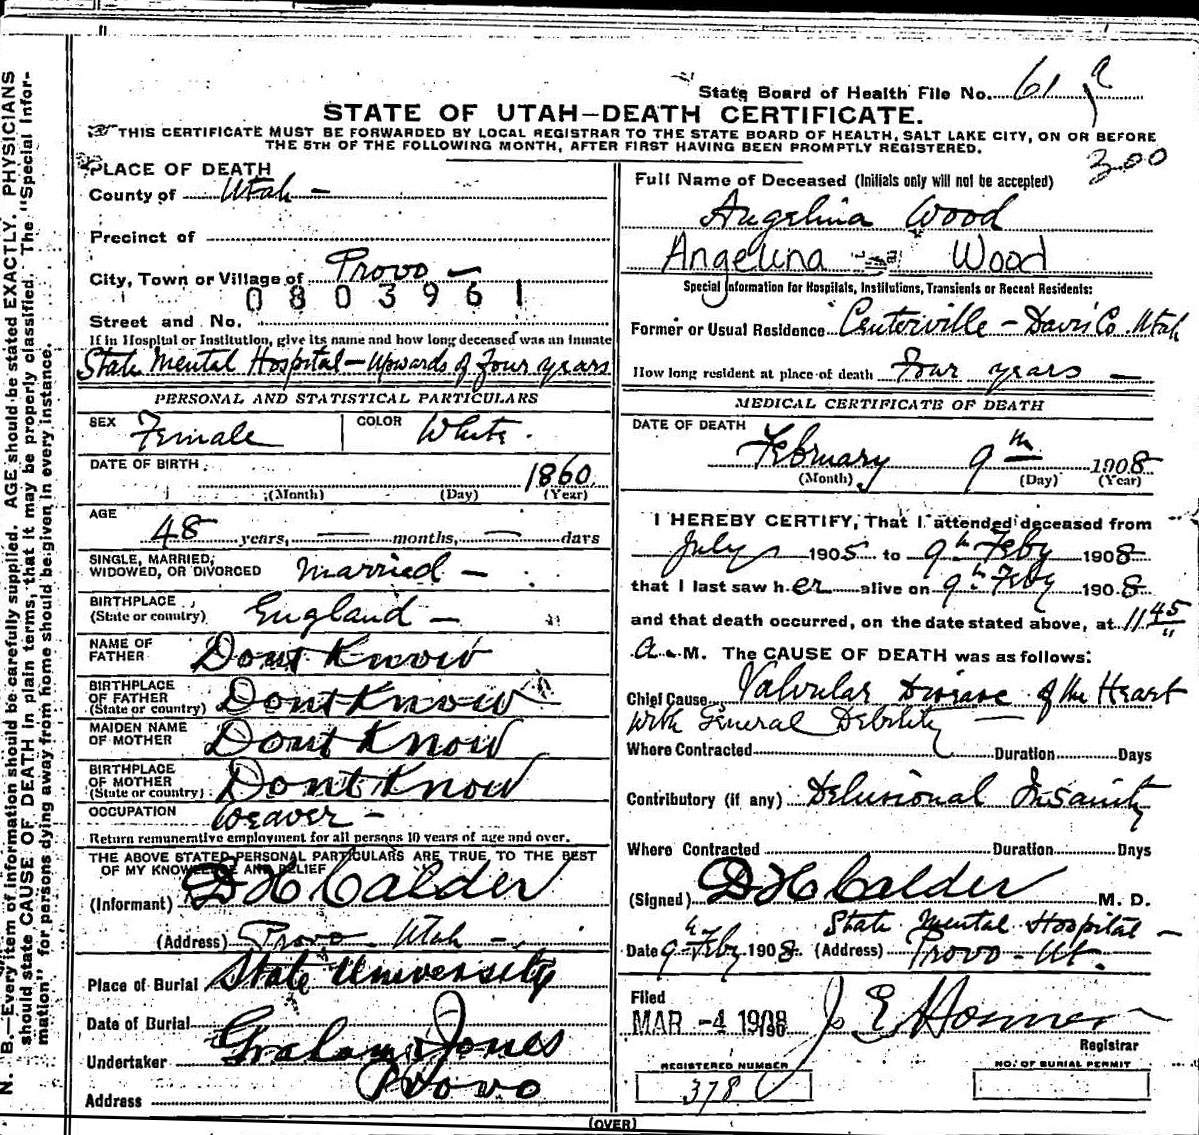 State Board of Health File No. 61
STATE OF UTAH—DEATH CERTIFICATE.
THIS CERTIFICATE MUST BE FORWARDED BY LOCAL REGISTRAR TO THE STATE BOARD OF HEALTH, SALT LAKE CITY, ON OR BEFORE
THE 5TH OF THE FOLLOWING MONTH, AFTER FIRST HAVING BEEN PROMPTLY REGISTERED.
300
PLACE OF DEATH
County of Utah —
Precinct of
City, Town or Village of Provo —
0803961
Street and No.
If in Hospital or Institution, give its name and how long deceased was an inmate
State Mental Hospital — Upwards of Four years
PERSONAL AND STATISTICAL PARTICULARS
SEX Female COLOR White.
DATE OF BIRTH 1860
(Month) (Day) (Year)
AGE
48 years, — months, — days
SINGLE, MARRIED,
WIDOWED, OR DIVORCED Married —
BIRTHPLACE
(State or country) England —
NAME OF
FATHER Dont Know
BIRTHPLACE
OF FATHER
(State or country) Dont Know
MAIDEN NAME
OF MOTHER Dont Know
BIRTHPLACE
OF MOTHER
(State or country) Dont Know
OCCUPATION Weaver —
Return remunerative employment for all persons 10 years of age and over.
THE ABOVE STATED PERSONAL PARTICULARS ARE TRUE TO THE BEST
OF MY KNOWLEDGE AND BELIEF
(Informant) D H Calder
(Address) Provo Utah —
Place of Burial State University
Date of Burial
Undertaker Graham Jones
Address Provo
Full Name of Deceased (Initials only will not be accepted)
Angelina Wood
Angelina Wood
Special Information for Hospitals, Institutions, Transients or Recent Residents:
Former or Usual Residence Centerville — Davis Co. Utah
How long resident at place of death Four years —
MEDICAL CERTIFICATE OF DEATH
DATE OF DEATH
February 9th 1908
(Month) (Day) (Year)
I HEREBY CERTIFY, That I attended deceased from
July 1905 to 9th Feby 1908
that I last saw her alive on 9th Feby 1908
and that death occurred, on the date stated above, at 11 45
a. M. The CAUSE OF DEATH was as follows:
Chief Cause Valvular Disease of the Heart
with General Debility —
Where Contracted Duration Days
Contributory (if any) Delusional Insanity
Where Contracted Duration Days
(Signed) D H Calder M. D.
State Mental Hospital —
Date 9th Feby 1908 (Address) Provo — Ut.
Filed
MAR -4 1908 J E Hosmer
Registrar
REGISTERED NUMBER NO. OF BURIAL PERMIT
378
(OVER)
N. B.—Every item of information should be carefully supplied. AGE should be stated EXACTLY. PHYSICIANS
should state CAUSE OF DEATH in plain terms, that it may be properly classified. The "Special Infor-
mation" for persons dying away from home should be given in every instance.